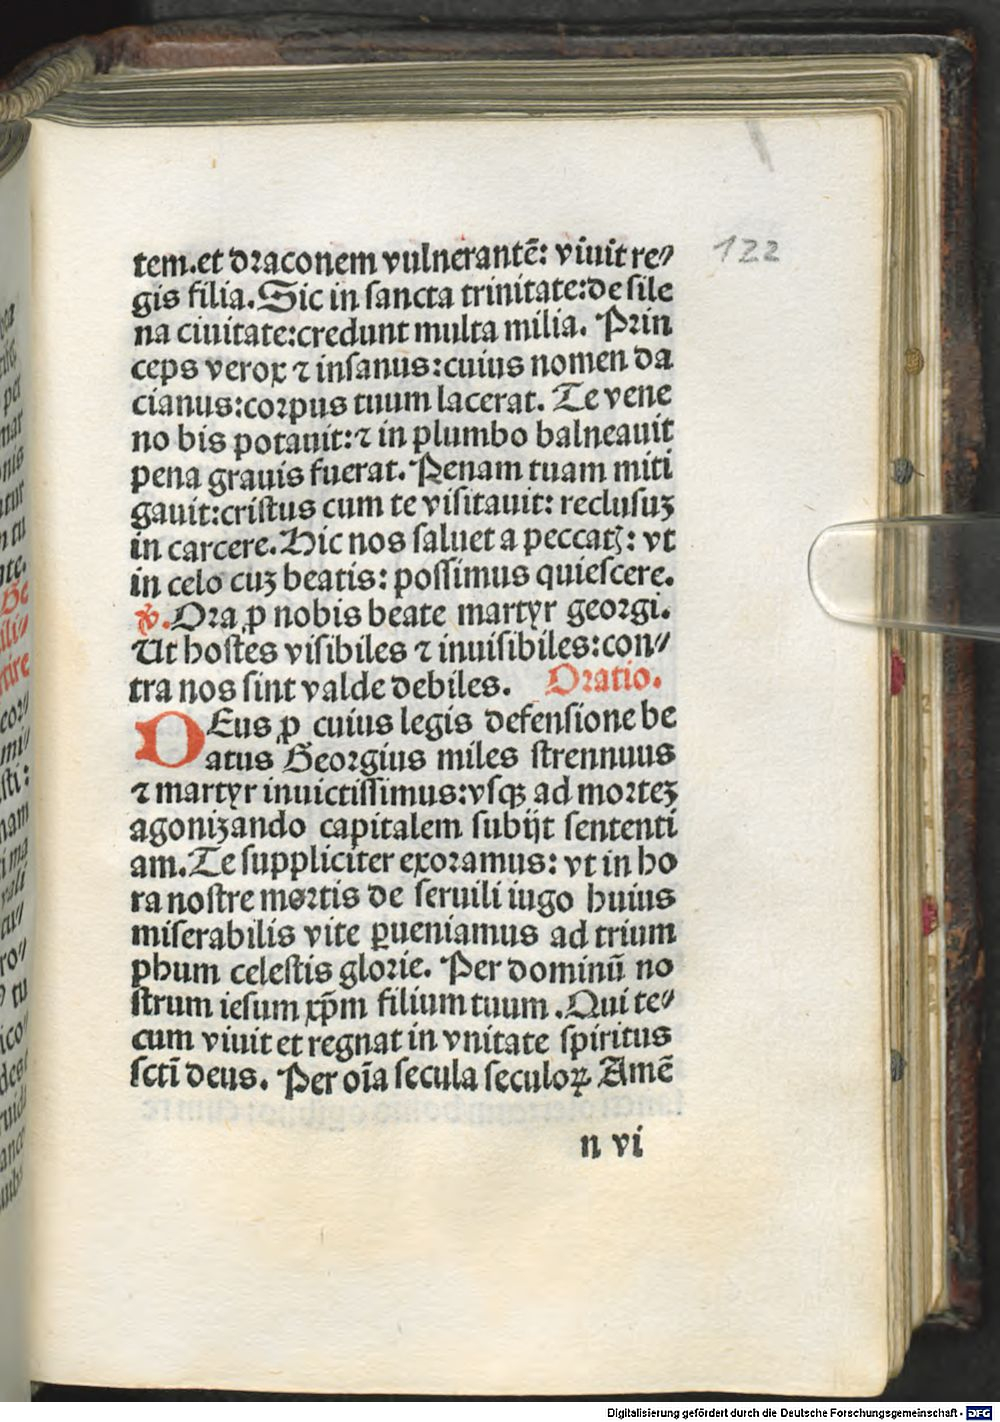 122
tem.et draconem vulnerantē: viuit re⸗
gis filia. Sic in sancta trinitate:de sile
na ciuitate:credunt multa milia. Prin
ceps veroꝝ ⁊ insanus:cuius nomen da
cianus:corpus tuum lacerat. Te vene
no bis potauit:⁊ in plumbo balneauit
pena grauis fuerat. Penam tuam miti
gauit:cristus cum te visitauit: reclusuꝫ
in carcere. Hic nos saluet a peccatꝭ: vt
in celo cuꝫ beatis: possimus quiescere.
℣. Ora ꝓ nobis beate martyr georgi.
Ut hostes visibiles ⁊ inuisibiles:con⸗
tra nos sint valde debiles. Oratio.
DEus ꝓ cuius legis defensione be
atus Georgius miles strennuus
⁊ martyr inuictissimus:vsqꝫ ad morteꝫ
agonizando capitalem subijt sententi
am. Te suppliciter exoramus: vt in ho
ra nostre mortis de seruili iugo huius
miserabilis vite ꝑueniamus ad trium
phum celestis glorie. Per dominū no
strum iesum xp̄m filium tuum. Qui te⸗
cum viuit et regnat in vnitate spiritus
sctī deus. Per oīa secula seculoꝝ Amē
n vi
Digitalisierung gefördert durch die Deutsche Forschungsgemeinschaft - DFG